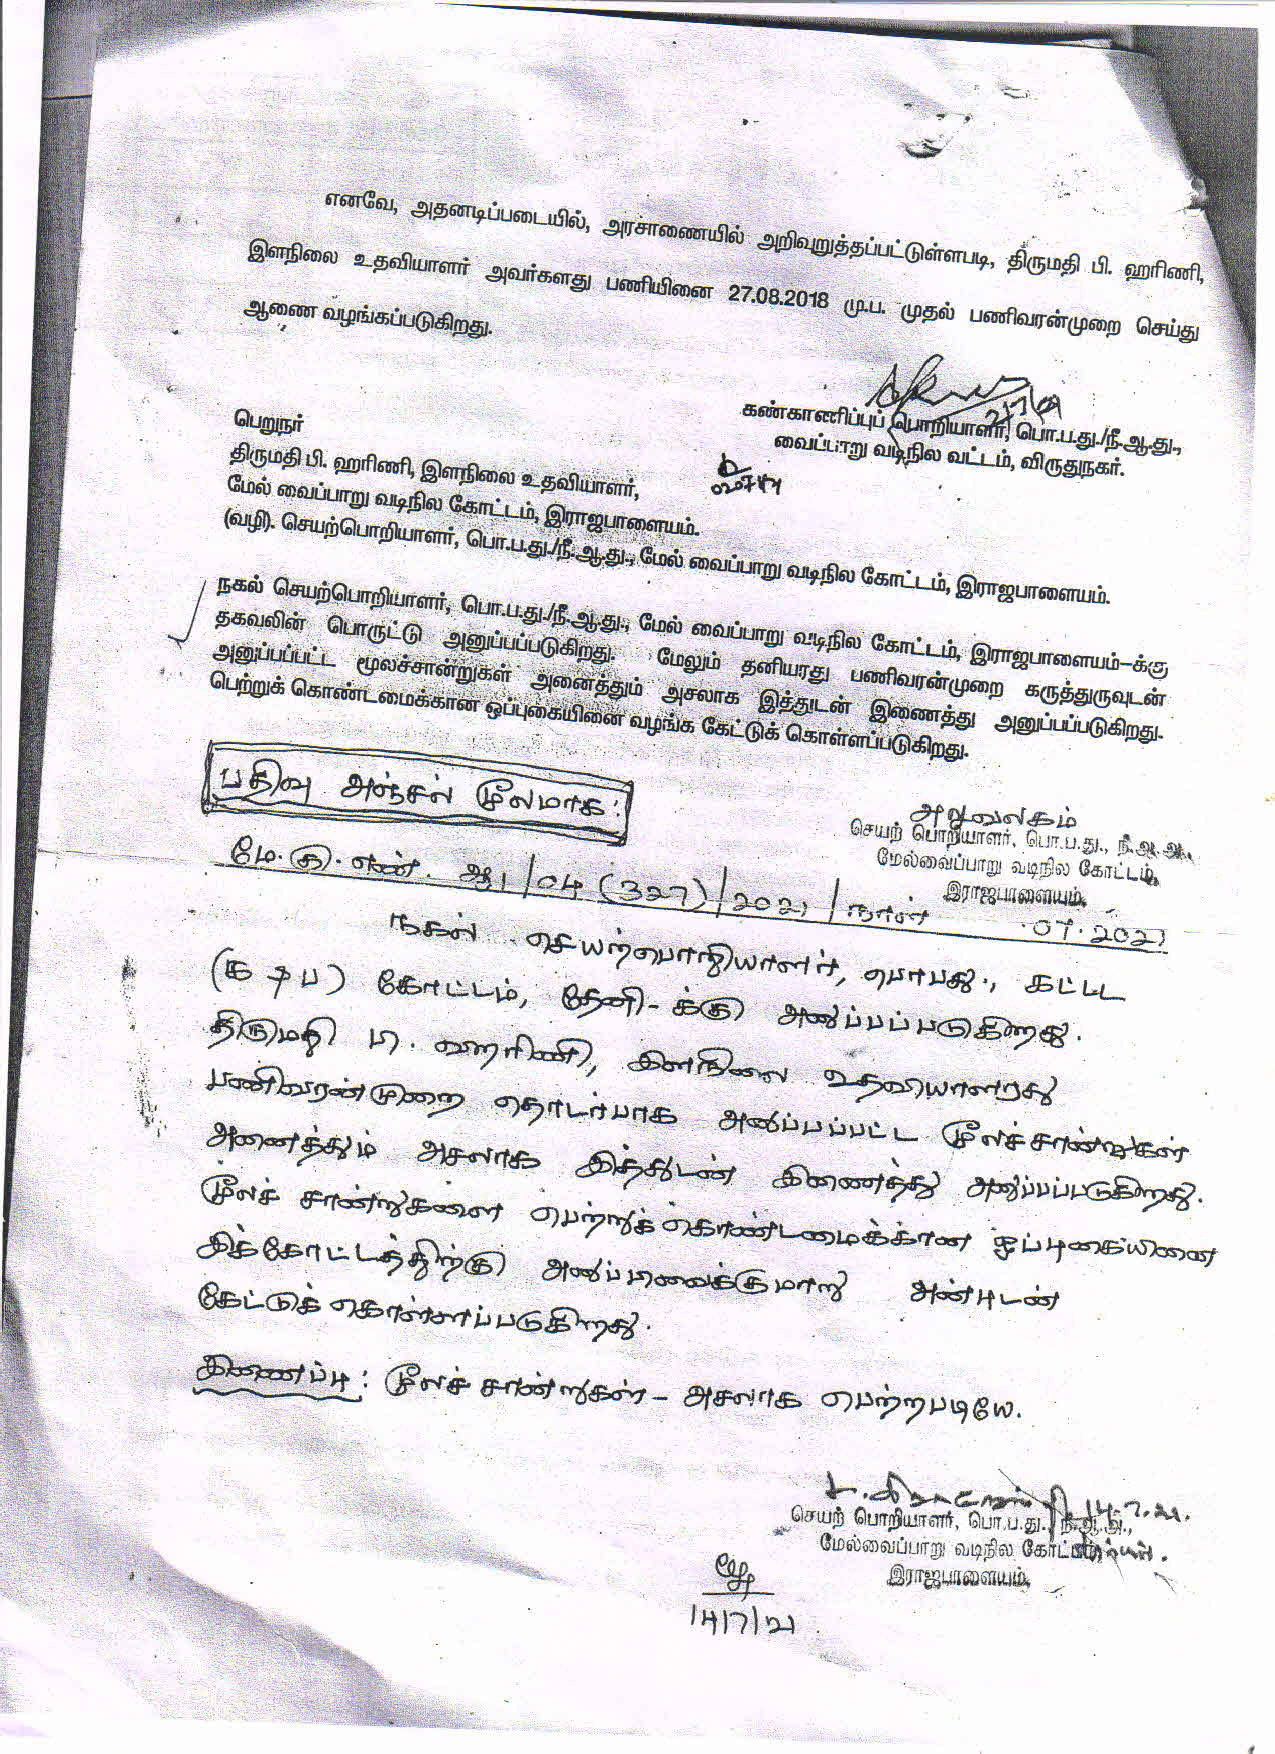 எனவே, அதனடிப்படையில், அரசாணையில் அறிவுறுத்தப்பட்டுள்ளபடி, திருமதி பி. ஹரிணி,
இளநிலை உதவியாளர் அவர்களது பணியினை 27.08.2018 மு.ப. முதல் பணிவரன்முறை செய்து
ஆணை வழங்கப்படுகிறது.
கண்காணிப்புப் பொறியாளர், பொ.ப.து./நீ.ஆ.து.,
வைப்பாறு வடிநில வட்டம், விருதுநகர்.
பெறுநர்
திருமதி பி. ஹரிணி, இளநிலை உதவியாளர்,
மேல் வைப்பாறு வடிநில கோட்டம், இராஜபாளையம்.
(வழி). செயற்பொறியாளர், பொ.ப.து./நீ.ஆ.து., மேல் வைப்பாறு வடிநில கோட்டம், இராஜபாளையம்.
நகல் செயற்பொறியாளர், பொ.ப.து./நீ.ஆ.து., மேல் வைப்பாறு வடிநில கோட்டம், இராஜபாளையம்-க்கு
தகவலின் பொருட்டு அனுப்பப்படுகிறது. மேலும் தனியரது பணிவரன்முறை கருத்துருவுடன்
அனுப்பப்பட்ட மூலச்சான்றுகள் அனைத்தும் அசலாக இத்துடன் இணைத்து அனுப்பப்படுகிறது.
பெற்றுக் கொண்டமைக்கான ஒப்புகையினை வழங்க கேட்டுக் கொள்ளப்படுகிறது.
பதிவு அஞ்சல் மூலமாக:
அலுவலகம்
செயற் பொறியாளர், பொ.ப.து., நீ.ஆ.அ.,
மேல்வைப்பாறு வடிநில கோட்டம்,
இராஜபாளையம்.
மே.கு.எண். ஆ1/04 (327)/2021/நாள் .07.2021
நகல் செயற்பொறியாளர், பொபது., கட்டட
(க ம ப) கோட்டம், தேனி-க்கு அனுப்பப்படுகிறது.
திருமதி பி. ஹரிணி, இளநிலை உதவியாளரது
பணிவரண்முறை தொடர்பாக அனுப்பப்பட்ட மூலச் சான்றுகள்
அனைத்தும் அசலாக இத்துடன் இணைத்து அனுப்பப்படுகிறது.
மூலச் சான்றுகளை பெற்றுக் கொண்டமைக்கான ஒப்புகையினை
இக்கோட்டத்திற்கு அனுப்பிவைக்குமாறு அன்புடன்
கேட்டுக் கொள்ளப்படுகிறது.
இணைப்பு: மூலச் சான்றுகள் - அசலாக பெற்றபடியே.
14.7.21.
செயற் பொறியாளர், பொ.ப.து., நீ.ஆ.அ.,
மேல்வைப்பாறு வடிநில கோட்டம்
இராஜபாளையம்.
14/7/21